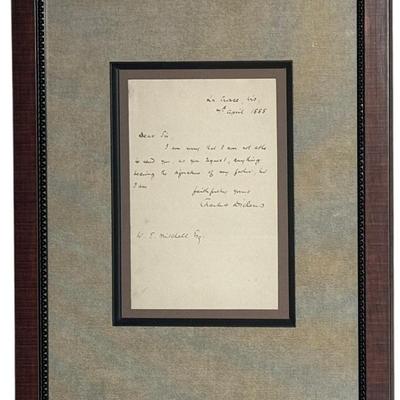 La Crosse, Wis,
April 1888
Dear Sir,
I am sorry that I am not able
to send you, as you request, anything
bearing the signature of my father, but
I am
faithfully yours
Charles Dickens
W. S. Mitchell Esq.